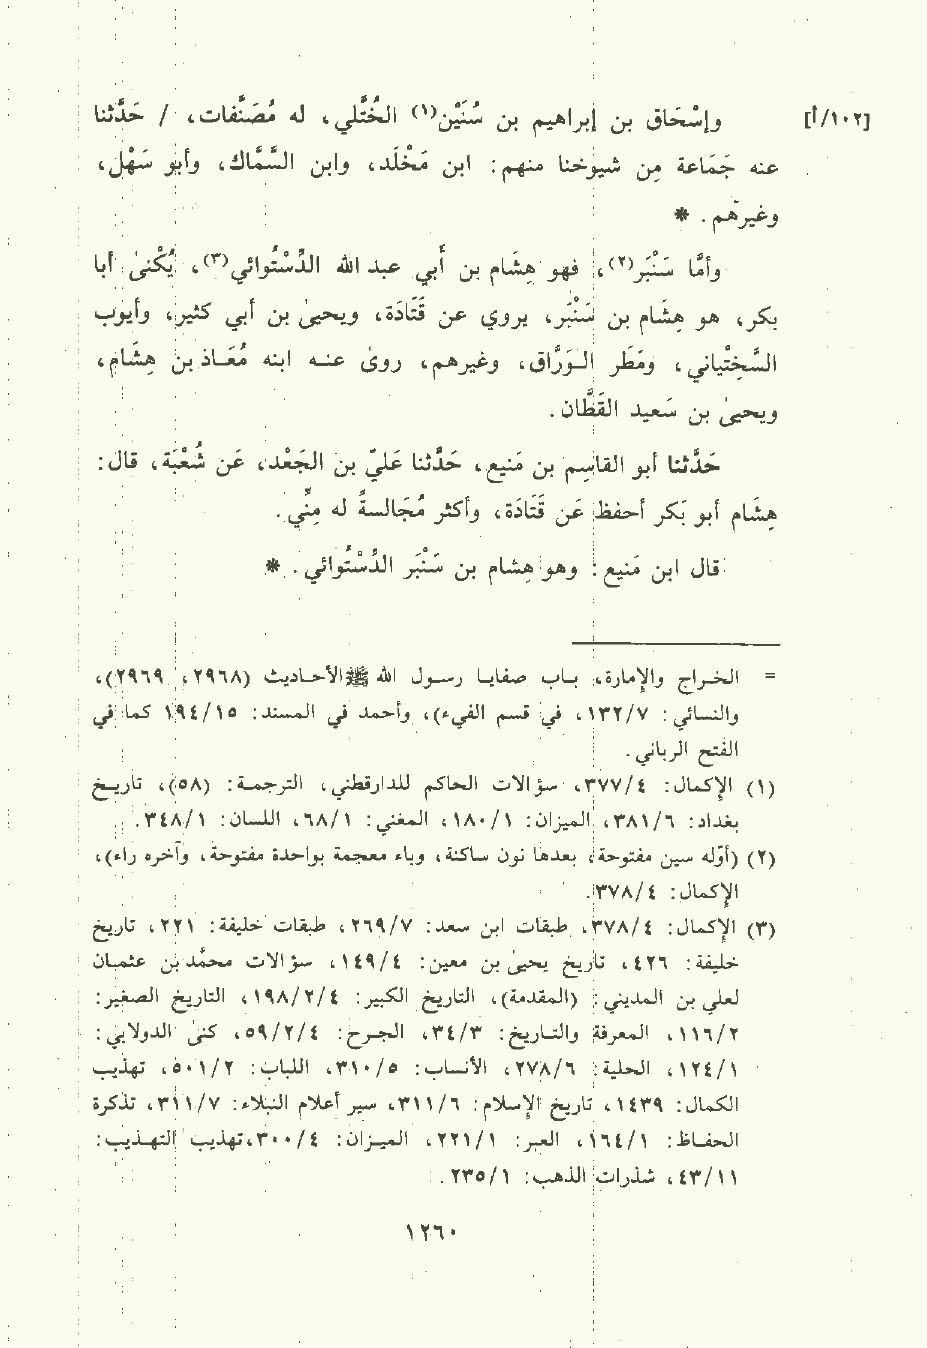 [١٠٢/أ] وإسْحَاق بن إبراهيم بن سُنَيْن(١) الخُتَّلي، له مُصَنَّفات، / حَدَّثنا
عنه جَمَاعة مِن شيوخنا منهم: ابن مَخْلَد، وابن السَّمَّاك، وأبو سَهْل،
وغيرهم. *
وأمَّا سَنْبَر(٢)، فهو هِشَام بن أبي عبد الله الدِّسْتُوائي(٣)، يُكْنىٰ أبا
بكر، هو هِشَام بن سَنْبَر، يروي عن قَتَادَة، ويحيىٰ بن أبي كثير، وأيوب
السَّخِتْياني، ومَطَر الوَرَّاق، وغيرهم، روىٰ عنه ابنه مُعَاذ بن هِشَام،
ويحيىٰ بن سَعيد القَطَّان.
حَدَّثنا أبو القاسِم بن مَنيع، حَدَّثنا عَليّ بن الجَعْد، عَن شُعْبَة، قال:
هِشَام أبو بَكر أحفظ عَن قَتَادَة، وأكثر مُجَالسةً له مِنِّي.
قال ابن مَنيع: وهو هِشام بن سَنْبَر الدِّسْتُوائي. *
= الخراج والإمارة، باب صفايا رسول الله ﷺ الأحاديث (٢٩٦٨، ٢٩٦٩)،
والنسائي: ١٣٢/٧، في قسم الفيء)، وأحمد في المسند: ١٩٤/١٥ كما في
الفتح الرباني.
(١) الإكمال: ٣٧٧/٤، سؤالات الحاكم للدارقطني، الترجمة: (٥٨)، تاريخ
بغداد: ٣٨١/٦، الميزان: ١٨٠/١، المغني: ٦٨/١، اللسان: ٣٤٨/١.
(٢) (أوّله سين مفتوحة، بعدها نون ساكنة، وباء معجمة بواحدة مفتوحة، وآخره راء)،
الإكمال: ٣٧٨/٤.
(٣) الإكمال: ٣٧٨/٤، طبقات ابن سعد: ٢٦٩/٧، طبقات خليفة: ٢٢١، تاريخ
خليفة: ٤٢٦، تاريخ يحيىٰ بن معين: ١٤٩/٤، سؤالات محمَّد بن عثمان
لعلي بن المديني: (المقدمة)، التاريخ الكبير: ١٩٨/٢/٤، التاريخ الصغير:
١١٦/٢، المعرفة والتاريخ: ٣٤/٣، الجرح: ٥٩/٢/٤، كنىٰ الدولابي:
١٢٤/١، الحلية: ٢٧٨/٦، الأنساب: ٣١٠/٥، اللباب: ٥٠١/٢، تهذيب
الكمال: ١٤٣٩، تاريخ الإسلام: ٣١١/٦، سير أعلام النبلاء: ٣١١/٧، تذكرة
الحفاظ: ١٦٤/١، العبر: ٢٢١/١، الميزان: ٣٠٠/٤، تهذيب التهذيب:
٤٣/١١، شذرات الذهب: ٢٣٥/١.
١٢٦٠